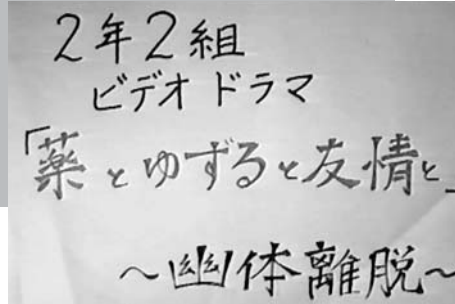 2年2組
ビデオドラマ
「薬とゆずると友情と」
～幽体離脱～